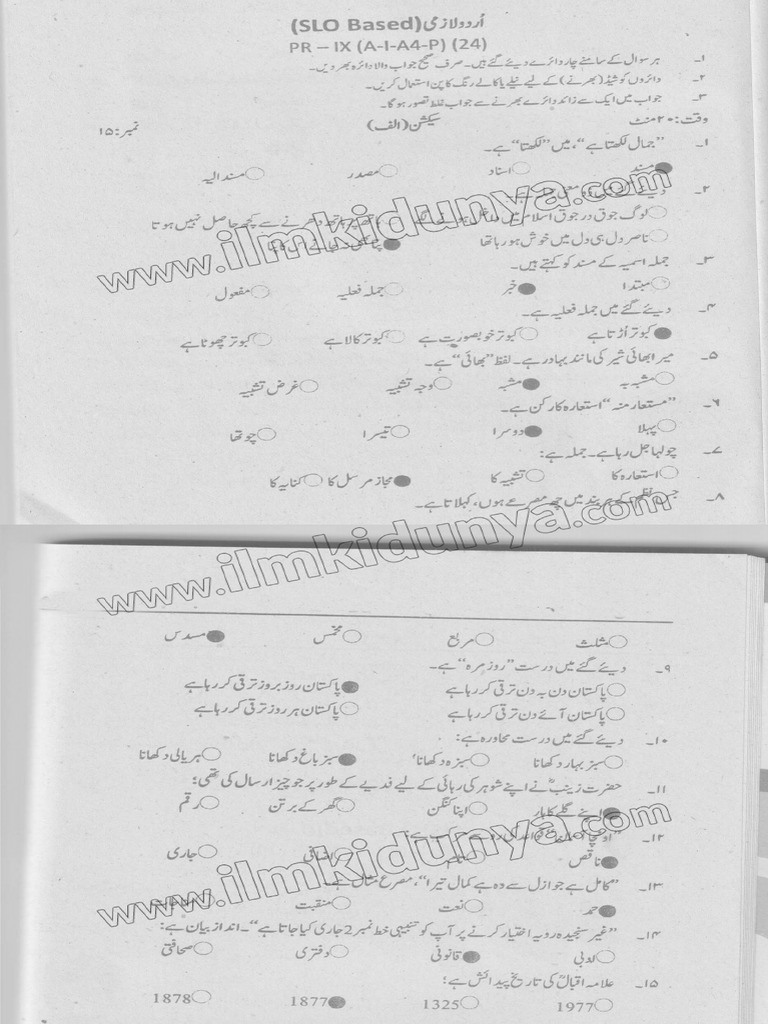 اُردو لازمی (SLO Based)
PR – IX (A-I-A4-P) (24)
۱۔ ہر سوال کے سامنے چار دائرے دیئے گئے ہیں۔ صرف صحیح جواب والا دائرہ بھر دیں۔
۲۔ دائروں کو شیڈ (بھرنے) کے لیے نیلے یا کالے رنگ کا پن استعمال کریں۔
۳۔ جواب میں ایک سے زائد دائرے بھرنے سے جواب غلط تصور ہو گا۔
وقت: ۲۰ منٹ سیکشن (الف) نمبر: ۱۵
۱۔ "جمال لکھتا ہے"، میں "لکھتا" ہے۔
مسند اسناد مصدر مسند الیہ
۲۔ دیئے
لوگ جوق در جوق اسلام میں نے سے کچھ حاصل نہیں ہوتا
ناصر دل ہی دل میں خوش ہو رہا تھا
۳۔ جملہ اسمیہ کے مسند کو کہتے ہیں۔
مبتدا خبر جملہ فعلیہ مفعول
۴۔ دیئے گئے میں جملہ فعلیہ ہے۔
کبوتر اُڑتا ہے کبوتر خوبصورت ہے کبوتر کالا ہے کبوتر چھوٹا ہے
۵۔ میرا بھائی شیر کی مانند بہادر ہے۔ لفظ "بھائی" ہے۔
مشبہ بہ مشبہ وجہ تشبیہ غرض تشبیہ
۶۔ "مستعار منہ" استعارہ کا رکن ہے۔
پہلا دوسرا تیسرا چوتھا
۷۔ چولہا جل رہا ہے۔ جملہ ہے:
استعارہ کا تشبیہ کا مجاز مرسل کا کنایہ کا
۸۔ جس نظم کے ہر بند میں چھ مصرعے ہوں، کہلاتا ہے۔
www.ilmkidunya.com
مثلث مربع مخمس مسدس
۹۔ دیئے گئے میں درست "روزمرہ" ہے۔
پاکستان دن بہ دن ترقی کر رہا ہے پاکستان روز بروز ترقی کر رہا ہے
پاکستان آئے دن ترقی کر رہا ہے پاکستان ہر روز ترقی کر رہا ہے
۱۰۔ دیئے گئے میں درست محاورہ ہے:
سبز بہار دکھانا سبزہ دکھانا سبز باغ دکھانا ہریالی دکھانا
۱۱۔ حضرت زینبؓ نے اپنے شوہر کی رہائی کے لیے فدیے کے طور پر جو چیز ارسال کی تھی؛
اپنے گلے کا ہار اپنا کنگن گھر کے برتن رقم
۱۲۔
ناقص جاری
۱۳۔ "کامل ہے جو ازل سے وہ ہے کمال تیرا"، مصرع مثال ہے۔
حمد نعت منقبت
۱۴۔ "غیر سنجیدہ رویہ اختیار کرنے پر آپ کو تنبیہی خط نمبر 2 جاری کیا جاتا ہے"۔ انداز بیان ہے:
ادبی قانونی دفتری صحافتی
۱۵۔ علامہ اقبالؒ کی تاریخ پیدائش ہے؛
1977 1325 1877 1878
www.ilmkidunya.com
www.ilmkidunya.com
www.ilmkidunya.com